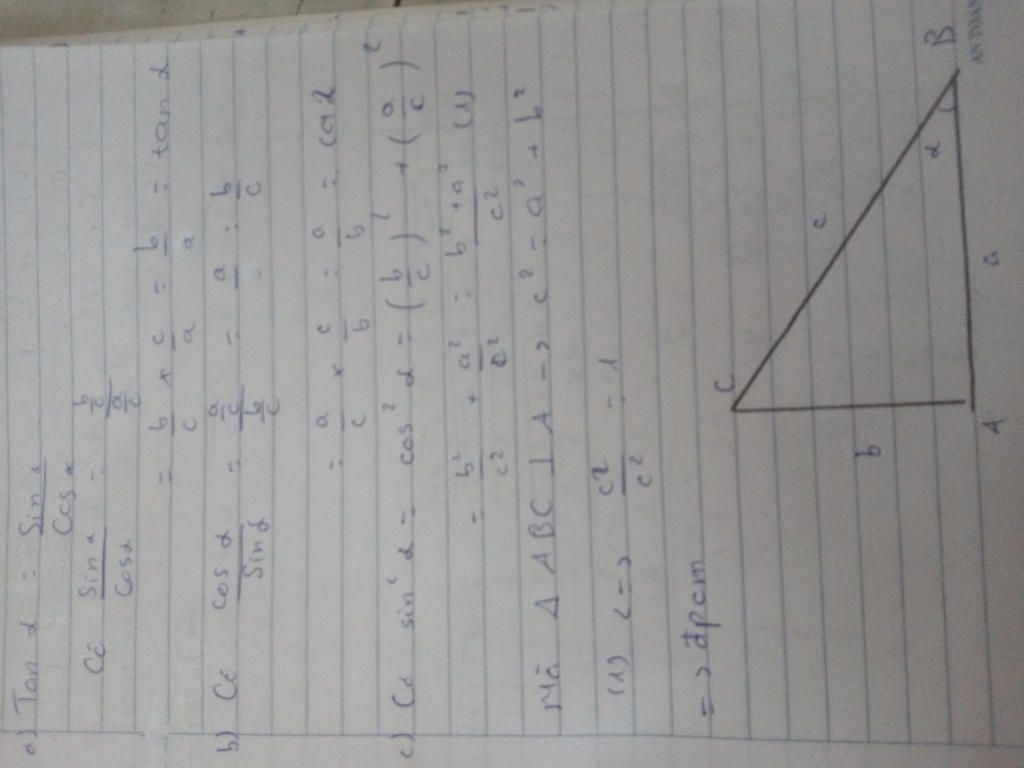 a) Tan α = Sin α / Cos α
Có Sin α / Cos α = (b/c) / (a/c)
= b/c × c/a = b/a = tan α
b) Có cos α / Sin α = (a/c) / (b/c) = a/c : b/c
= a/c × c/b = a/b = cot α
c) Có sin² α = cos² α = (b/c)² + (a/c)²
= b²/c² + a²/c² = b² + a² / c² (1)
Mà Δ ABC ⊥ A => c² = a² + b²
(1) <=> c²/c² = 1
=> đpcm
C
B
c
α
b
a
A